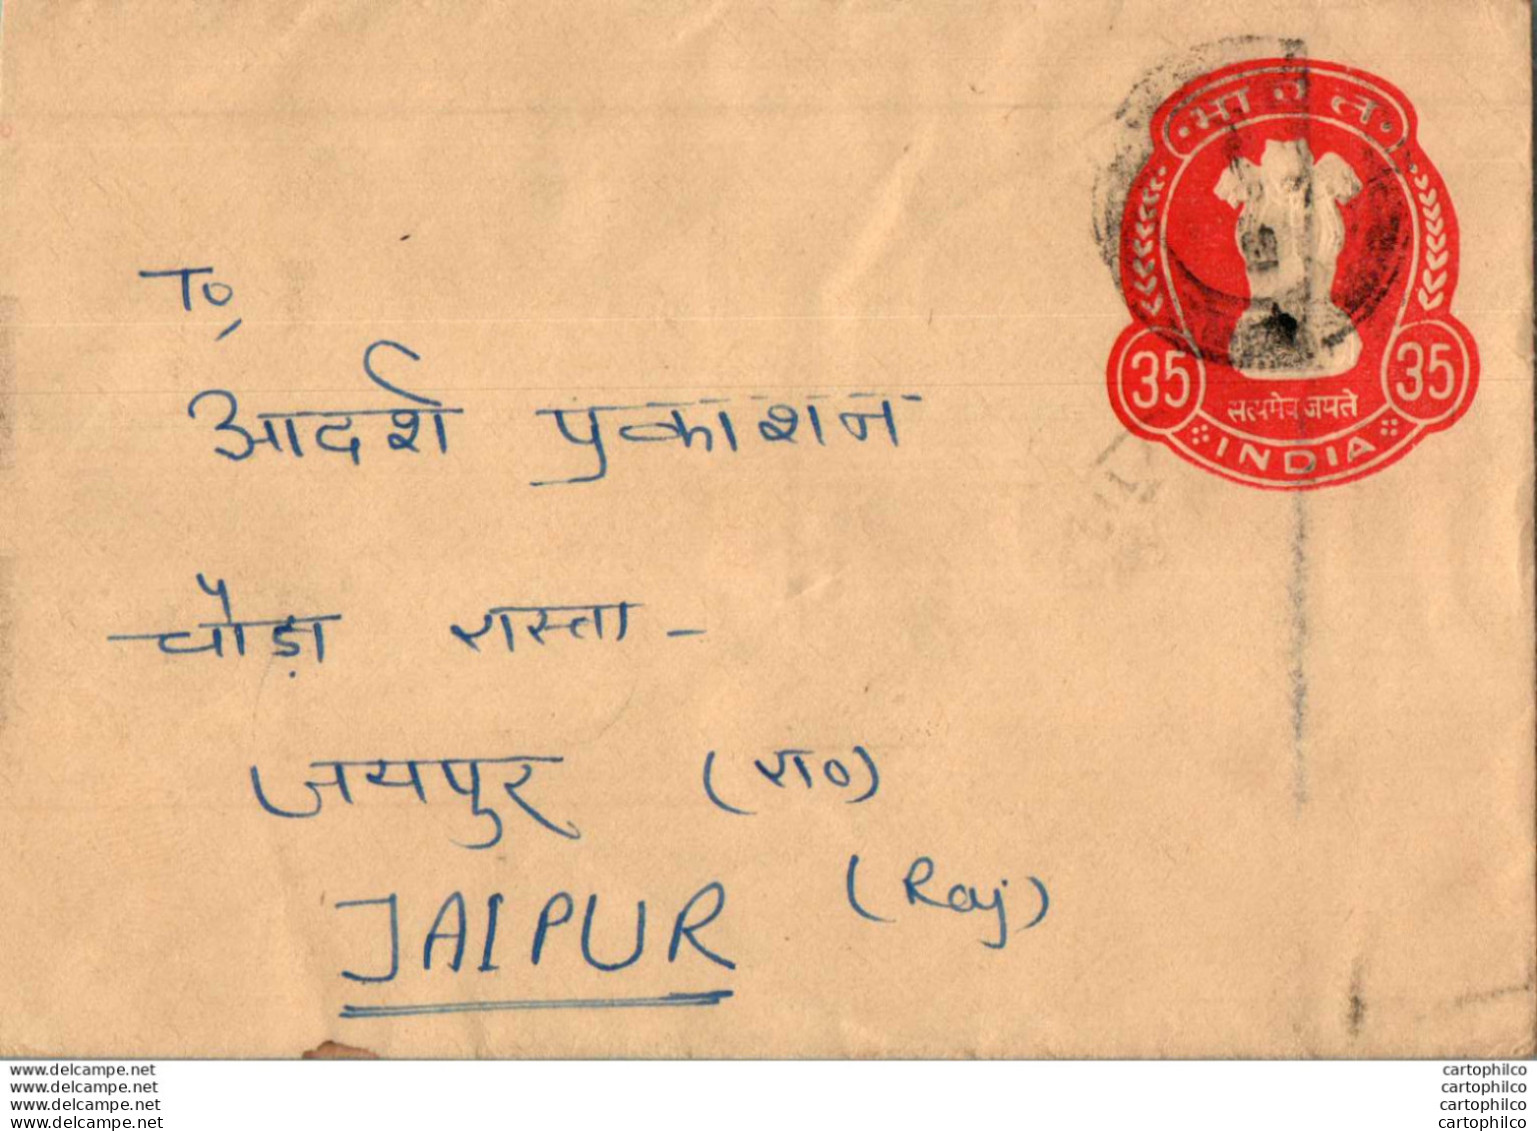 भारत
35 35
सत्यमेव जयते
INDIA
To,
आदर्श प्रकाशन
चौड़ा रास्ता -
जयपुर (रा०)
(Raj)
JAIPUR
www.delcampe.net
www.delcampe.net
www.delcampe.net
www.delcampe.net
cartophilco
cartophilco
cartophilco
cartophilco